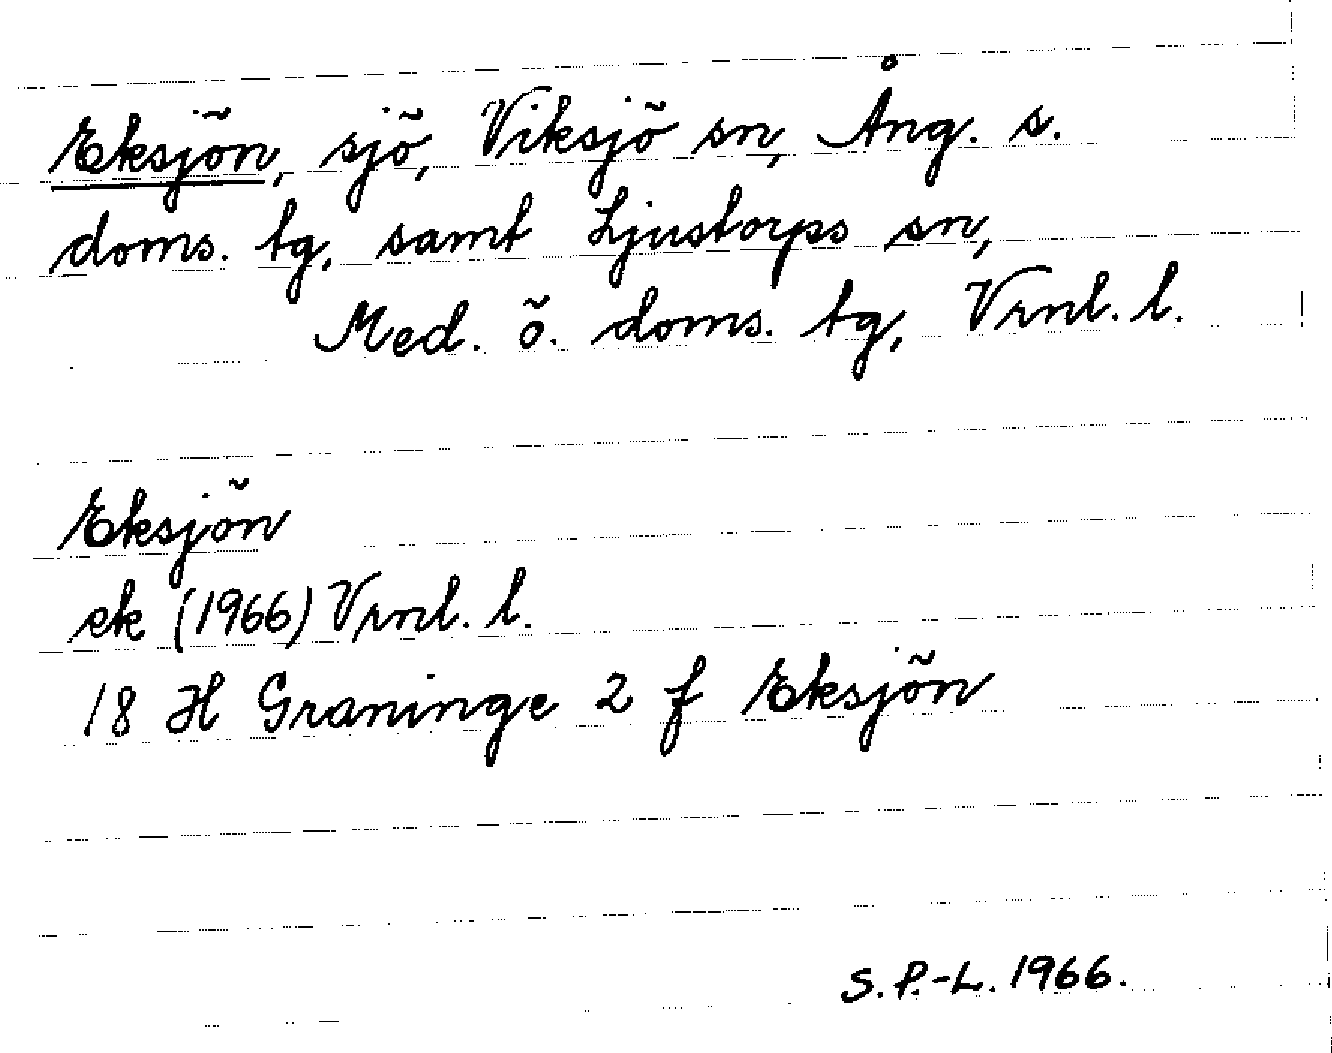 Eksjön, sjö, Viksjö sn, Ång. s.
doms. tg, samt Ljustorps sn,
Med. ö. doms. tg, Vrnl. l.
Eksjön
ek (1966) Vrnl. l.
18 H Graninge 2 f Eksjön
S.P.-L. 1966.